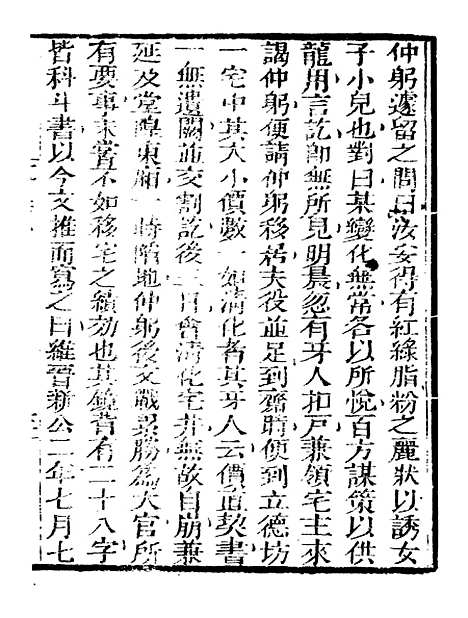 仲躬遽留之問曰汝安得有紅綠脂粉之麗狀以誘女
子小兒也對曰某變化無常各以所悅百方謀策以供
龍用言訖卽無所見明晨忽有牙人扣戸兼領宅主來
謁仲躬便請仲躬移居夫役並足到齋時便到立德坊
一宅中其大小價數一如淸化者其牙人云價直契書
一無遺闕並交割訖後三日㑹淸化宅井無故自崩兼
延及堂隍東廂一時陷地仲躬後文戰累勝爲大官所
有要事未嘗不如移宅之績効也其鏡背有二十八字
皆科斗書以今文推而寫之曰維晉新公二年七月七